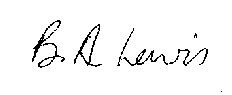 B. A Lewis